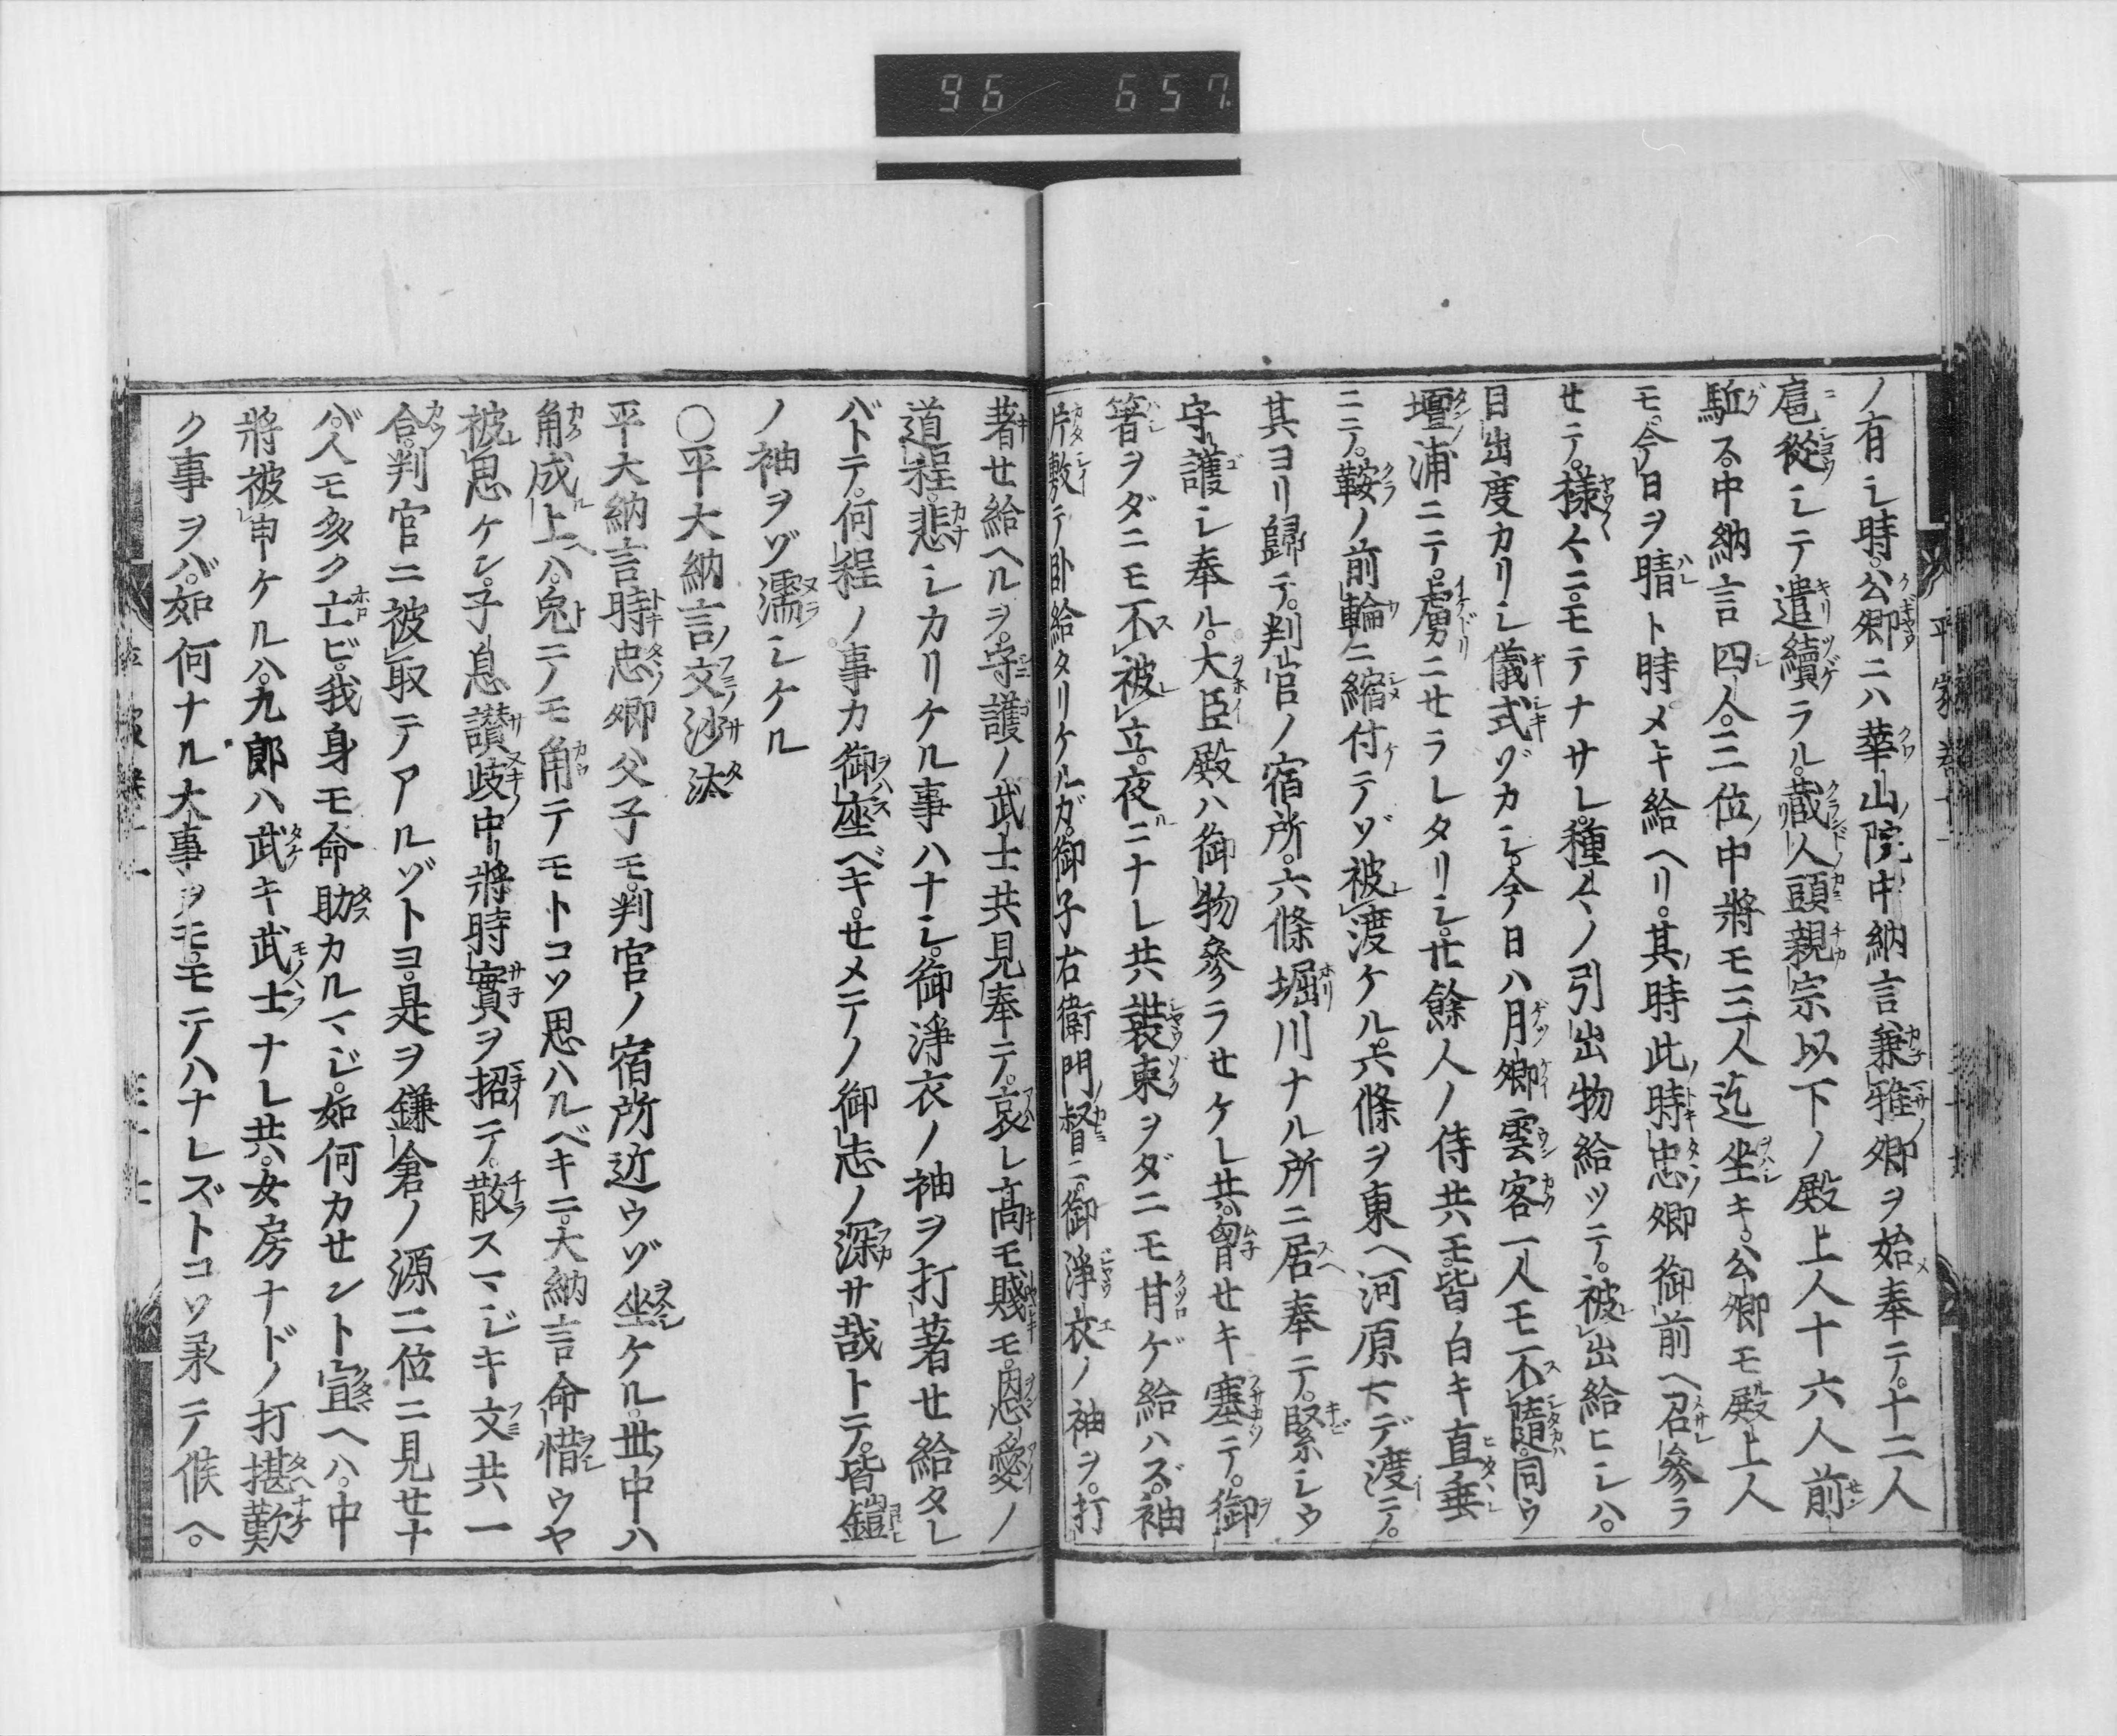 96 657
ノ有シ時。公卿ニハ華山ノ院中納言兼雅卿ヲ始メ奉テ。十二人
扈從シテ遣續ラル。藏人頭親宗以下ノ殿上人十六人前
駈ス。中納言四人。三位中將モ三人迄坐キ。公卿モ殿上人
モ。今日ヲ晴ト時メキ給ヘリ。其時此時忠卿御前ヘ召參ラ
セテ。様々ニモテナサレ。種々ノ引出物給ツテ。被出給ヒシハ。
目出度カリシ儀式ゾカシ。今日ハ月卿雲客一人モ不隨。同ウ
壇浦ニテ。虜ニセラレタリシ。廿餘人ノ侍共モ。皆白キ直垂
ニテ。鞍ノ前輪ニ縮付テゾ被渡ケル。六條ヲ東ヘ河原マデ渡テ。
其ヨリ歸テ。判官ノ宿所。六條堀川ナル所ニ居奉テ。緊シウ
守護シ奉ル。大臣殿ハ御物參ラセケレ共。胷セキ塞テ。御
箸ヲダニモ不被立。夜ニナレ共裝束ヲダニモ甘ゲ給ハズ。袖
片敷テ臥給タリケルガ。御子右衛門督ニ。御淨衣ノ袖ヲ。打
著セ給ヘルヲ。守護ノ武士共見奉テ。哀レ高モ賤モ。恩愛ノ
道程。悲シカリケル事ハナシ。御淨衣ノ袖ヲ打著セ給タレ
バトテ。何程ノ事カ御座ベキ。セメテノ御志ノ深サ哉トテ。皆鎧
ノ袖ヲゾ濡シケル
○平大納言ノ文ノ沙汰
平大納言時忠卿父子モ。判官ノ宿所近ウゾ坐ケル。世中ハ
角成上ハ。兎テモ角テモトコソ思ハルベキニ。大納言命惜ウヤ
被思ケン。子息讃岐中將時實ヲ招テ。散スマジキ文共一
合。判官ニ被取テアルゾトヨ。是ヲ鎌倉ノ源二位ニ見セナ
バ。人モ多ク亡ビ。我身モ命助カルマジ。如何カセント宣ヘハ。中
將被申ケルハ。九郎ハ武キ武士ナレ共。女房ナドノ打揕歎
ク事ヲバ。如何ナル大事ヲモ。モテハナレズトコソ承テ候ヘ。